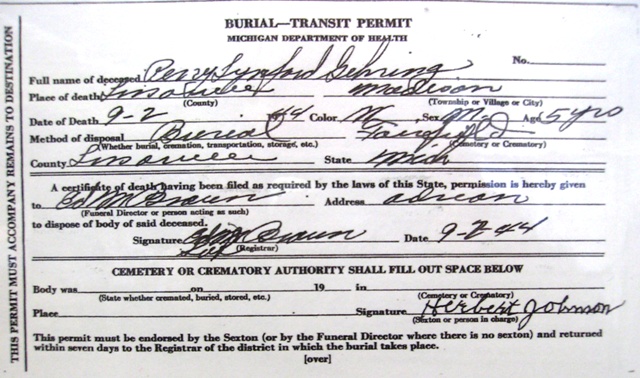 BURIAL—TRANSIT PERMIT
MICHIGAN DEPARTMENT OF HEALTH
No.
Full name of deceased Perry Lynford Gehring
Place of death Madison
(County) (Township or Village or City)
Date of Death 9-2 1944 Color W Sex M. Age 5 yrs
Method of disposal Burial Fairfield
(Whether burial, cremation, transportation, storage, etc.) (Cemetery or Crematory)
County State Mich
A certificate of death having been filed as required by the laws of this State, permission is hereby given
to Ed M Braun Address Adrian
(Funeral Director or person acting as such)
to dispose of body of said deceased.
Signature Ed M Braun Date 9-2-44
(Registrar)
CEMETERY OR CREMATORY AUTHORITY SHALL FILL OUT SPACE BELOW
Body was on 19 in
(State whether cremated, buried, stored, etc.) (Cemetery or Crematory)
Place Signature Herbert Johnson
(Sexton or person in charge)
This permit must be endorsed by the Sexton (or by the Funeral Director where there is no sexton) and returned
within seven days to the Registrar of the district in which the burial takes place.
[over]
THIS PERMIT MUST ACCOMPANY REMAINS TO DESTINATION